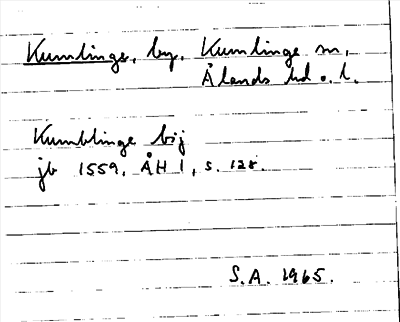 Kumlinge, by. Kumlinge sn,
Ålands hd o. l.
Kumblinge bÿ
jb 1559, ÅH 1, s. 128.
S.A. 1965.